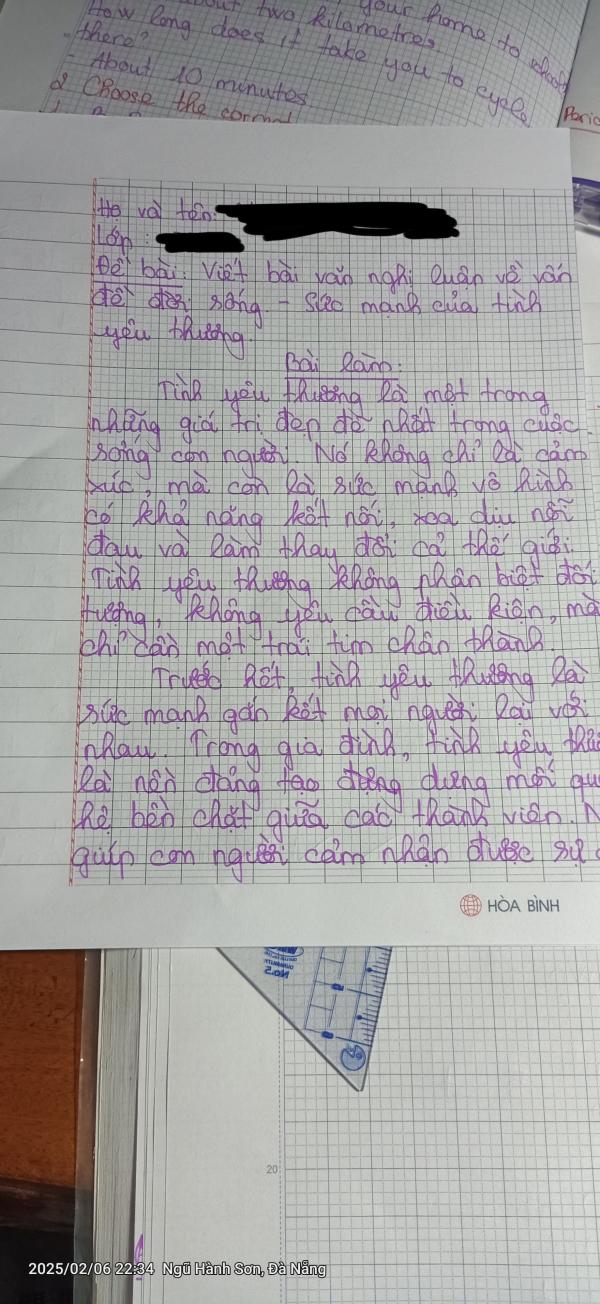 about two kilometres
your home to school
How long does it take you to cycle
there?
- About 10 minutes
2 Choose the correct
Họ và tên:
Lớp :
Đề bài: Viết bài văn nghị luận về vấn
đề đời sống. - Sức mạnh của tình
yêu thương.
Bài làm:
Tình yêu thương là một trong
những giá trị đẹp đẽ nhất trong cuộc
sống con người. Nó không chỉ là cảm
xúc, mà còn là sức mạnh vô hình
có khả năng kết nối, xoa dịu nỗi
đau và làm thay đổi cả thế giới.
Tình yêu thương không phân biệt đối
tượng, không yêu cầu điều kiện, mà
chỉ cần một trái tim chân thành.
Trước hết, tình yêu thương là
sức mạnh gắn kết mọi người lại với
nhau. Trong gia đình, tình yêu
là nền tảng tạo dựng mối
hệ bền chặt giữa các thành viên.
giúp con người cảm nhận được sự
HÒA BÌNH
No.2
20
2025/02/06 22:34 Ngũ Hành Sơn, Đà Nẵng